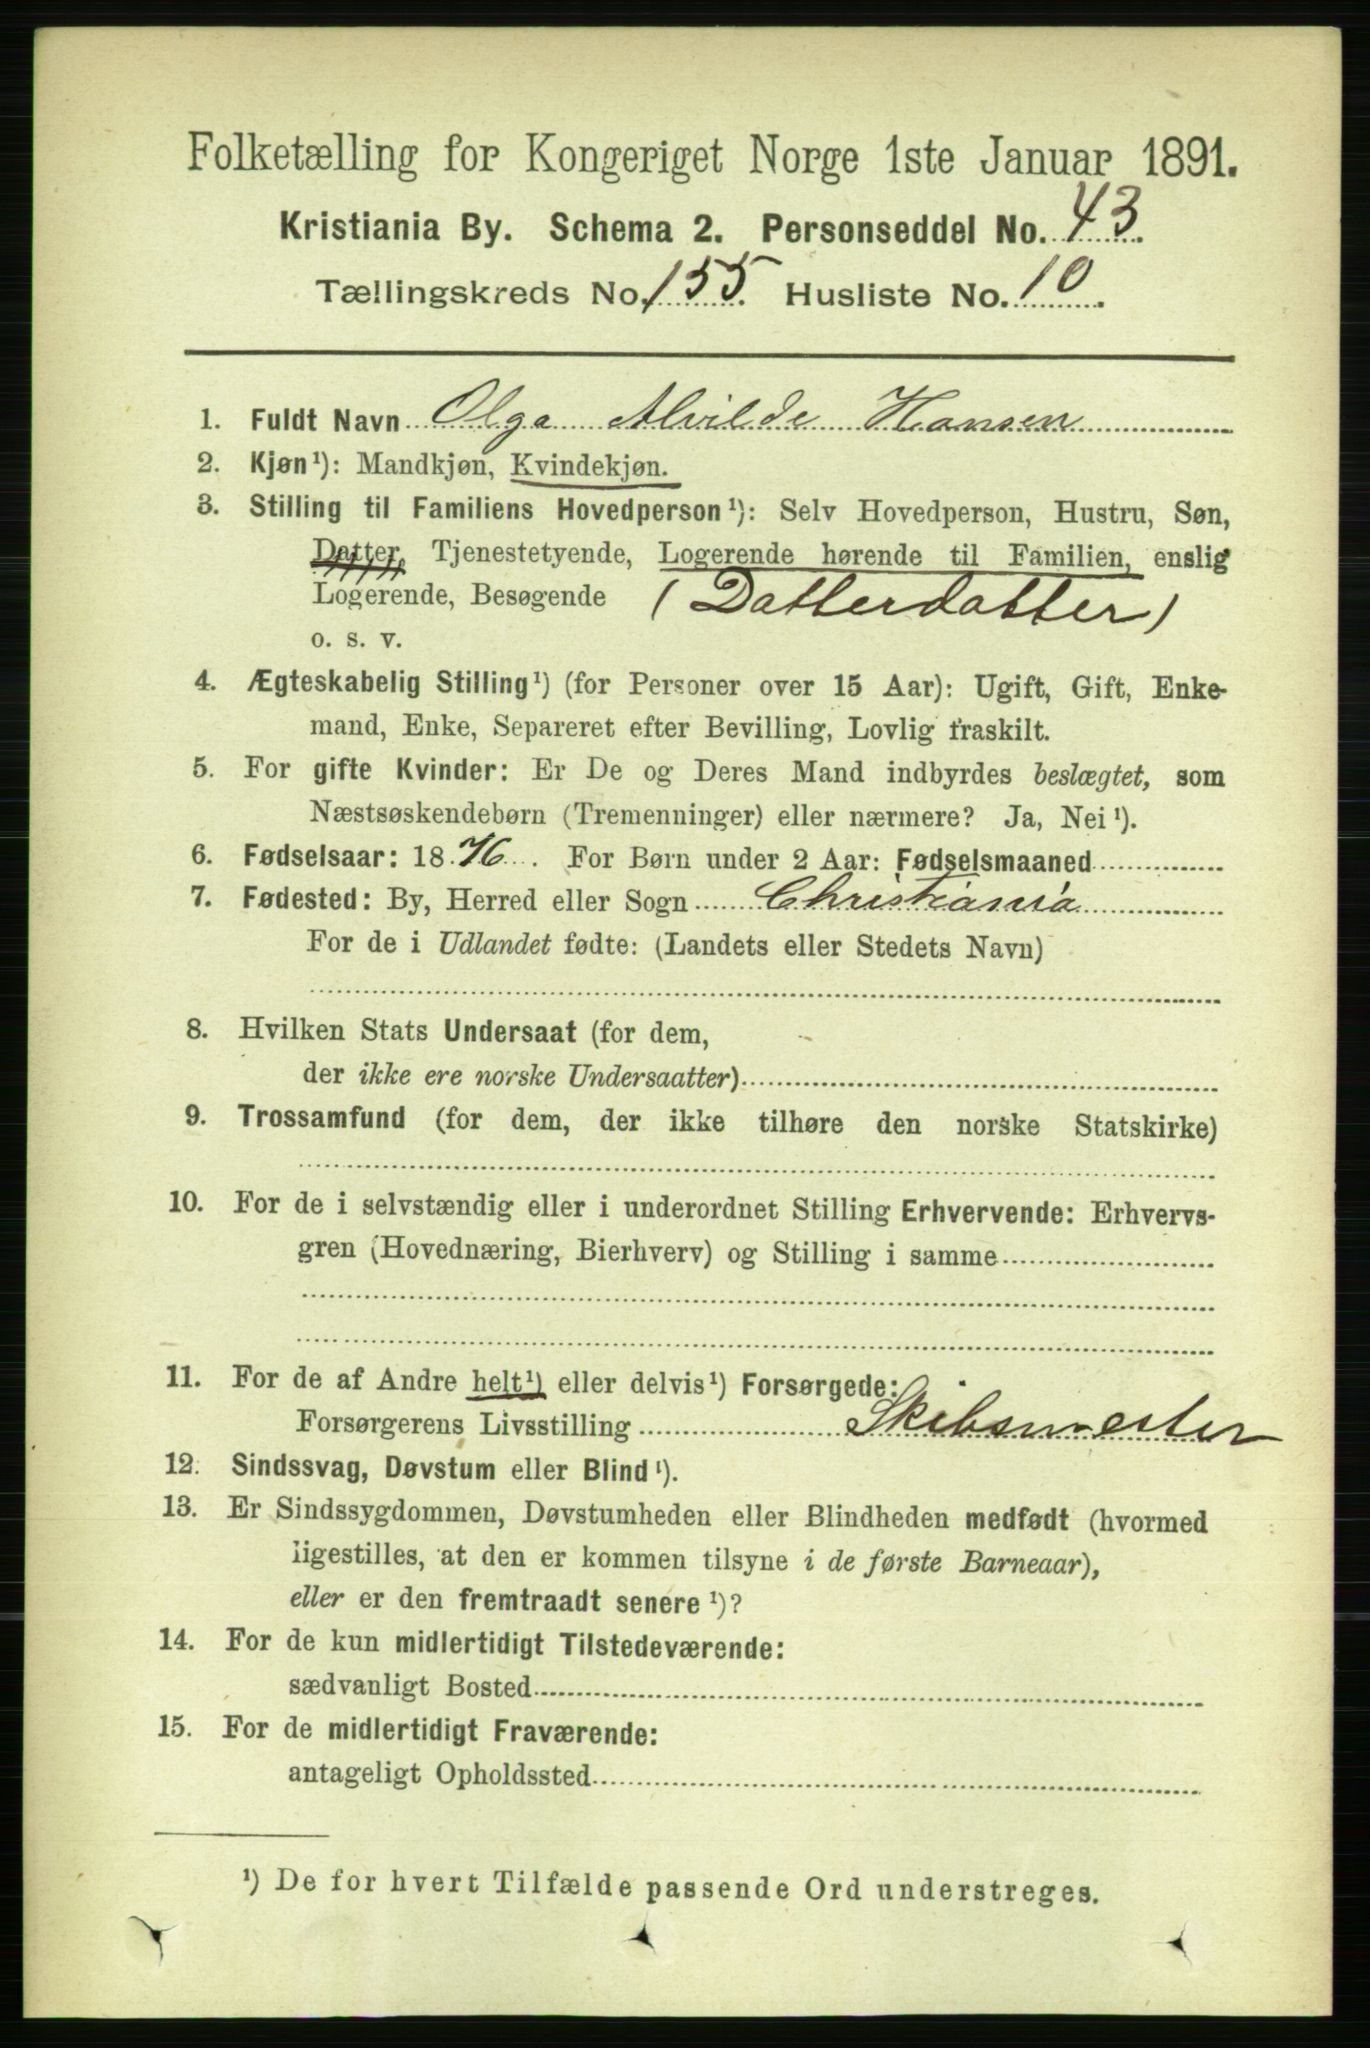 Folketælling for Kongeriget Norge 1ste Januar 1891.
Kristiania By. Schema 2. Personseddel No. 43.
Tællingskreds No. 155. Husliste No. 10.
1. Fuldt Navn Olga Alvilde Hansen
2. Kjøn¹): Mandkjøn, Kvindekjøn.
3. Stilling til Familiens Hovedperson¹): Selv Hovedperson, Hustru, Søn,
Datter, Tjenestetyende, Logerende hørende til Familien, enslig
Logerende, Besøgende (Datterdatter)
o. s. v.
4. Ægteskabelig Stilling¹) (for Personer over 15 Aar): Ugift, Gift, Enke-
mand, Enke, Separeret efter Bevilling, Lovlig fraskilt.
5. For gifte Kvinder: Er De og Deres Mand indbyrdes beslægtet, som
Næstsøskendebørn (Tremenninger) eller nærmere? Ja, Nei¹).
6. Fødselsaar: 1876. For Børn under 2 Aar: Fødselsmaaned
7. Fødested: By, Herred eller Sogn Christiania
For de i Udlandet fødte: (Landets eller Stedets Navn)
8. Hvilken Stats Undersaat (for dem,
der ikke ere norske Undersaatter)
9. Trossamfund (for dem, der ikke tilhøre den norske Statskirke)
10. For de i selvstændig eller i underordnet Stilling Erhvervende: Erhvervs-
gren (Hovednæring, Bierhverv) og Stilling i samme
11. For de af Andre helt¹) eller delvis¹) Forsørgede:
Forsørgerens Livsstilling Skibsmester
12. Sindssvag, Døvstum eller Blind¹).
13. Er Sindssygdommen, Døvstumheden eller Blindheden medfødt (hvormed
ligestilles, at den er kommen tilsyne i de første Barneaar),
eller er den fremtraadt senere¹)?
14. For de kun midlertidigt Tilstedeværende:
sædvanligt Bosted
15. For de midlertidigt Fraværende:
antageligt Opholdssted
¹) De for hvert Tilfælde passende Ord understreges.